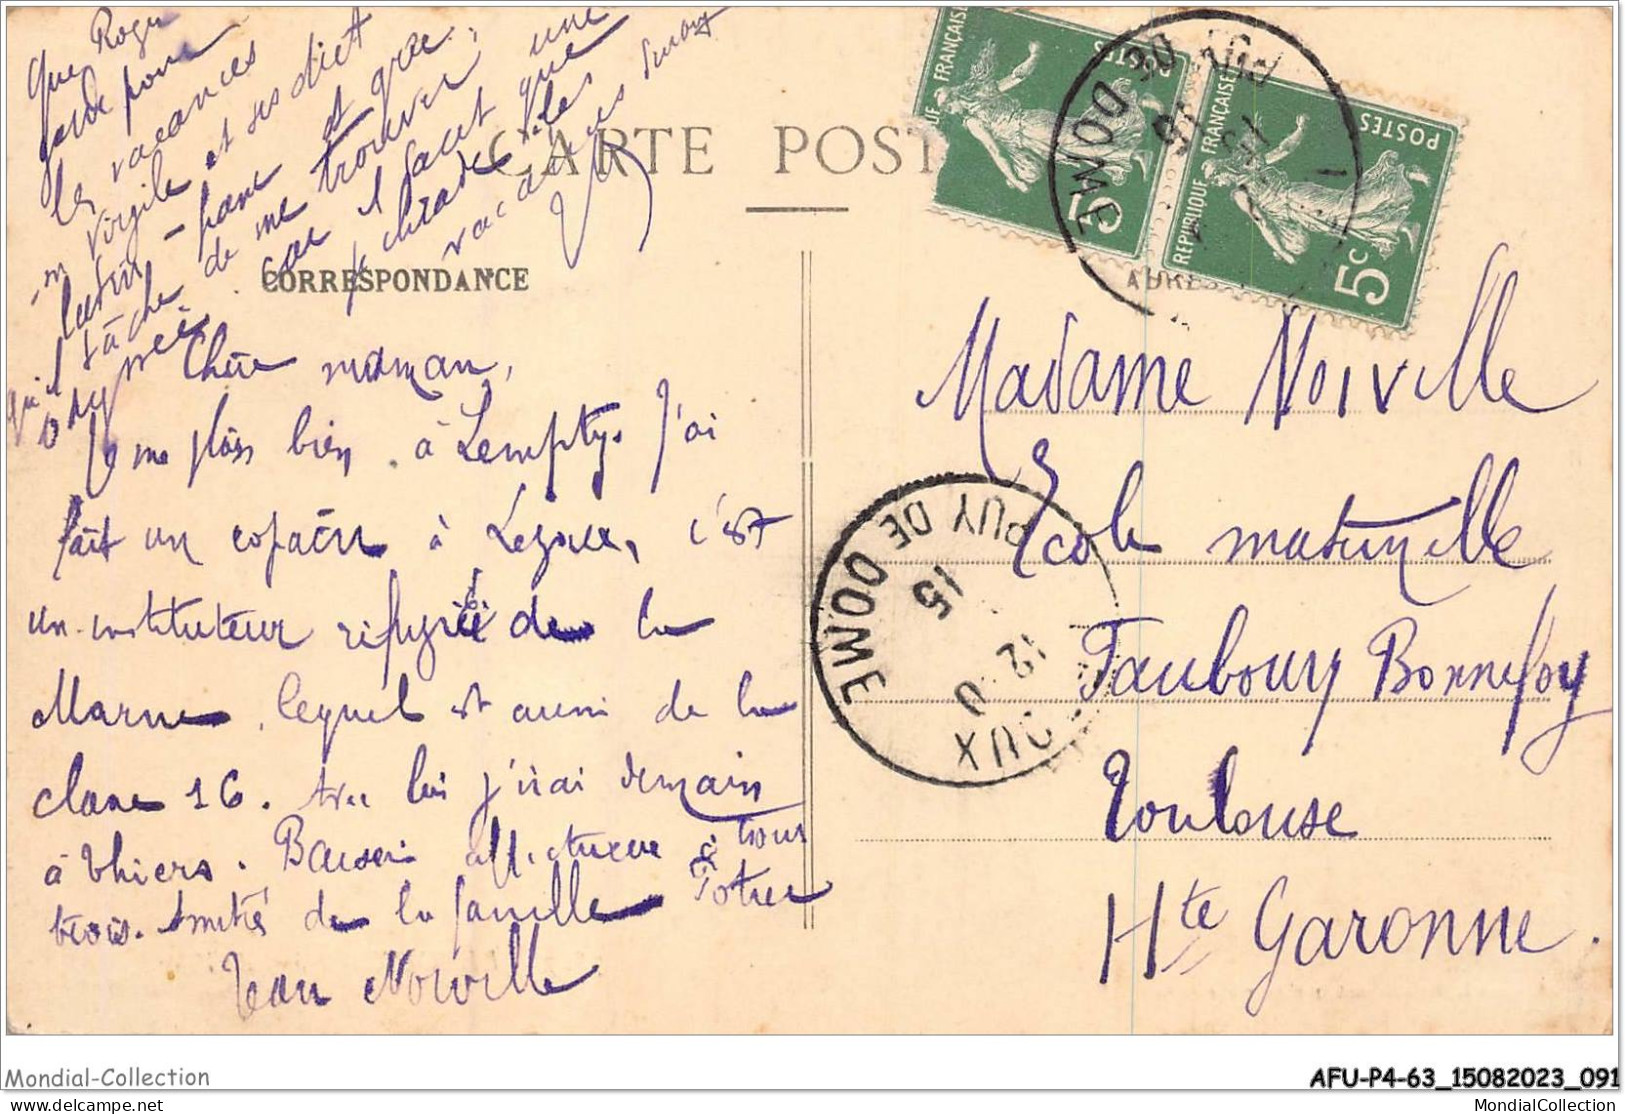 que Roger
garde pour
les vacances
m Virgile et ses dict
latin - franc et grec.
qu'il tâche de me trouver une
Odyssée car il faut que
je
vacances
CARTE POST
CORRESPONDANCE
ADRES
RÉPUBLIQUE FRANÇAISE
POSTES
5c
RÉPUBLIQUE FRANÇAISE
POSTES
5c
PUY DE DOME
15
Chère maman,
Je me plais bien à Lempty. J'ai
fait un copain à Lezoux, c'est
un instituteur réfugié de la
Marne, lequel est aussi de la
classe 16. Avec lui j'irai demain
à Thiers. Baisers affectueux à tous
trois. Amitiés de la famille Potier
Jean Noirville
PUY DE DOME
15
12
OUX
Madame Noirville
Ecole maternelle
Faubourg Bonnefoy
Toulouse
Hte Garonne.
Mondial-Collection
AFU-P4-63_15082023_091
delcampe.net
MondialCollection